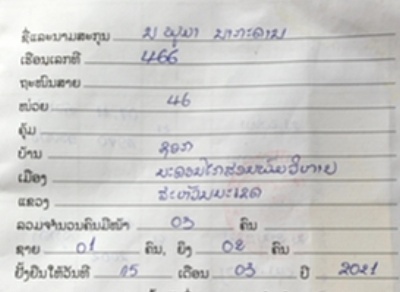 ຊື່ແລະນາມສະກຸນ ນ
ເຮືອນເລກທີ 466
ຖະໜົນສາຍ
ໜ່ວຍ 46
ຄຸ້ມ
ບ້ານ
ເມືອງ ນະຄອນໄກສອນພົມວິຫານ
ແຂວງ ສະຫວັນນະເຂດ
ລວມຈຳນວນຄົນມີໜ້າ 03 ຄົນ
ຊາຍ 01 ຄົນ, ຍິງ 02 ຄົນ
ຢັ້ງຢືນໃຫ້ວັນທີ 15 ເດືອນ 03 ປີ 2021